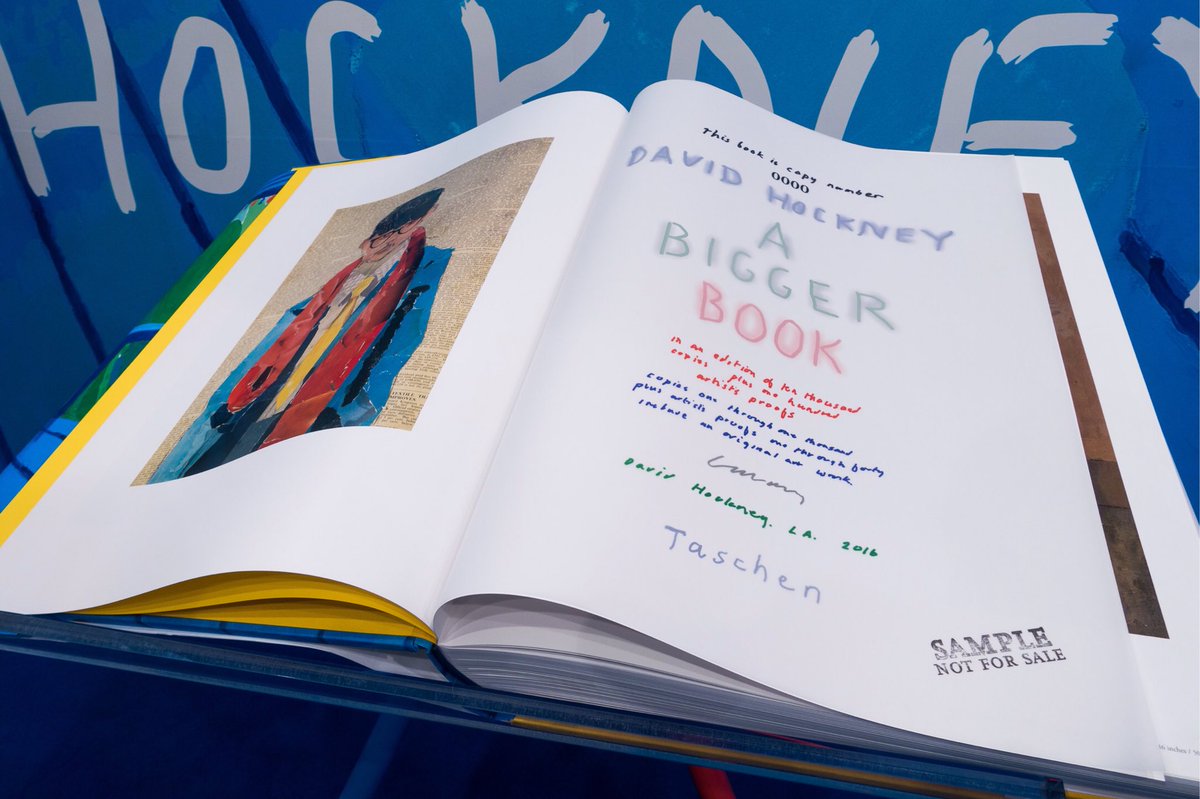 HOCKNEY
This book is copy number
0000
DAVID HOCKNEY
A
BIGGER
BOOK
in an edition of ten thousand
copies plus one hundred
artists proofs
copies one through one thousand
plus artists proofs one through forty
include an original art work
David Hockney. LA. 2016
Taschen
SAMPLE
NOT FOR SALE